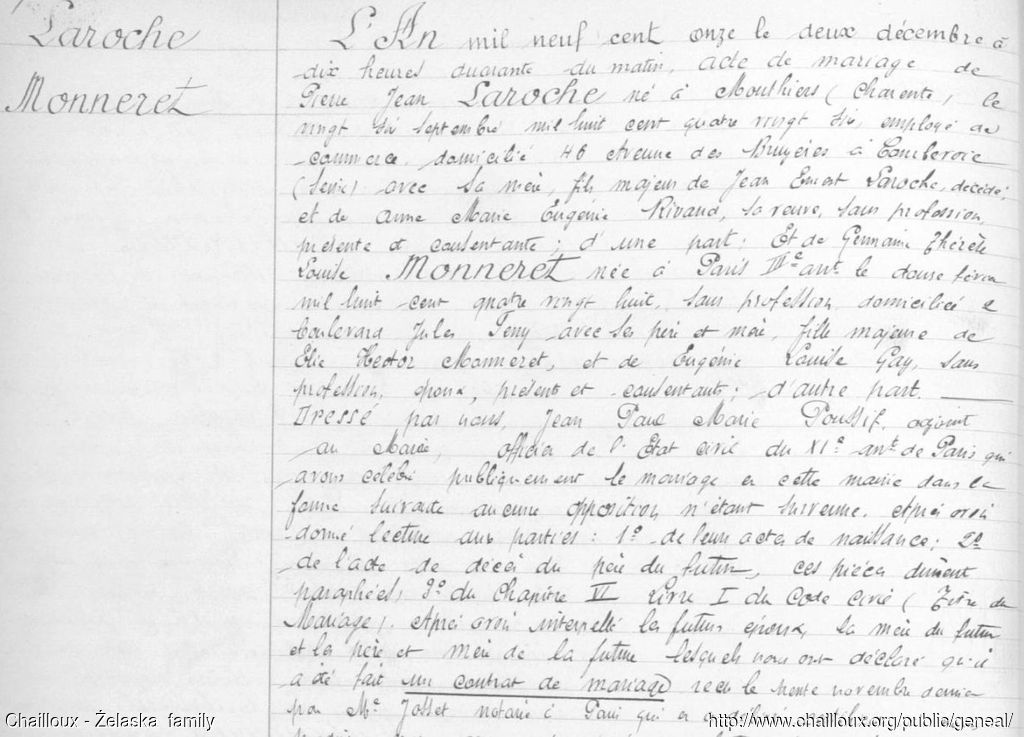 Laroche
Monneret
L'An mil neuf cent onze le deux décembre à
dix heures quarante du matin, acte de mariage de
Pierre Jean Laroche né à Mouthiers (Charente) le
vingt six septembre mil huit cent quatre vingt six, employé de
commerce, domicilié 46 Avenue des Bruyères à Courbevoie
(Seine) avec sa mère, fils majeur de Jean Ernest Laroche, décédé,
et de Anne Marie Eugénie Rivaud, sa veuve, sans profession,
présente et consentante; d'une part; Et de Germaine Thérèse
Louise Monneret née à Paris III.e arr.t le douze février
mil huit cent quatre vingt huit, sans profession, domiciliée
boulevard Jules Ferry avec ses père et mère, fille majeure de
Elie Hector Monneret, et de Eugénie Louise Gay, sans
profession, époux, présents et consentants; d'autre part.
Dressé par nous, Jean Paul Marie Poussif, adjoint
au Maire, officier de l'Etat civil du XI.e arr.t de Paris qui
avons célébré publiquement le mariage en cette mairie dans la
forme suivante aucune opposition n'étant survenue. Après avoir
donné lecture aux parties: 1.o de leurs actes de naissance; 2.o
de l'acte de décès du père du futur, ces pièces dûment
paraphées, 3.o du Chapitre VI Livre I du Code civil (Titre du
Mariage). Après avoir interpellé les futurs époux, la mère du futur
et les père et mère de la future lesquels nous ont déclaré qu'il
a été fait un contrat de mariage reçu le trente novembre dernier
par M.e Josset notaire à Paris qui en a délivré
Chailloux - Żelaska family
http://www.chailloux.org/public/geneal/